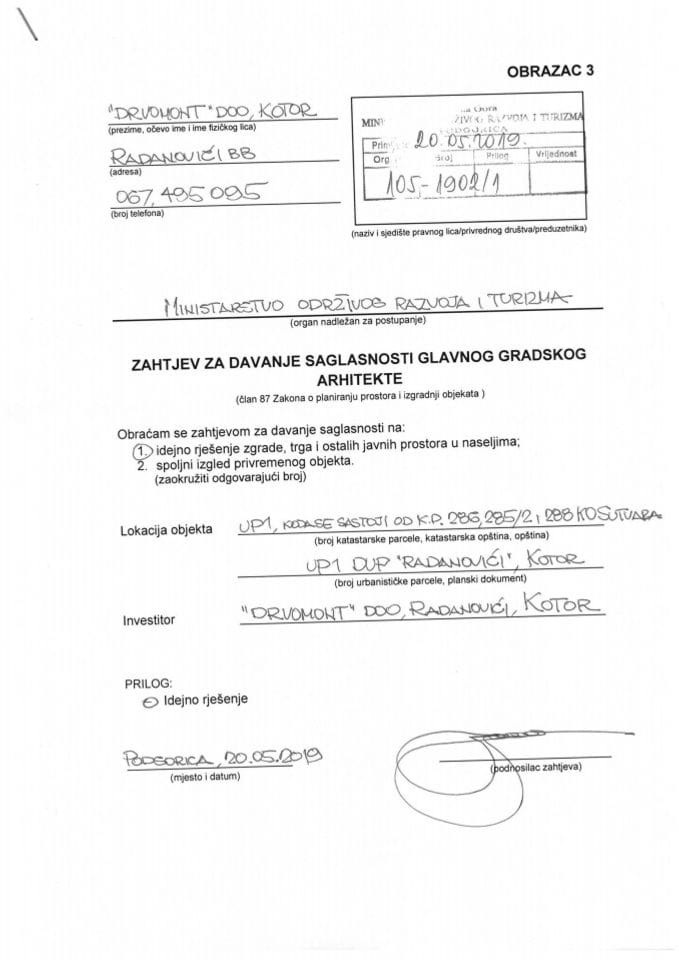 OBRAZAC 3
"DRVOMONT" DOO, KOTOR
(prezime, očevo ime i ime fizičkog lica)
RADANOVIĆI BB
(adresa)
067, 495 095
(broj telefona)
na Gora
MIN ŽIVOG RAZVOJA I TURIZMA
PODGORICA
20.05.2019.
Org Broj Prilog Vrijednost
105,-1902/1
(naziv i sjedište pravnog lica/privrednog društva/preduzetnika)
MINISTARSTVO ODRŽIVOG RAZVOJA I TURIZMA
(organ nadležan za postupanje)
ZAHTJEV ZA DAVANJE SAGLASNOSTI GLAVNOG GRADSKOG
ARHITEKTE
(član 87 Zakona o planiranju prostora i izgradnji objekata )
Obraćam se zahtjevom za davanje saglasnosti na:
1. idejno rješenje zgrade, trga i ostalih javnih prostora u naseljima;
2. spoljni izgled privremenog objekta.
(zaokružiti odgovarajući broj)
Lokacija objekta UP1, KOJA SE SASTOJI OD K.P. 286, 285/2 i 288 KO SUTVARA
(broj katastarske parcele, katastarska opština, opština)
UP1 DUP "RADANOVIĆI", KOTOR
(broj urbanističke parcele, planski dokument)
Investitor "DRVOMONT" DOO, RADANOVIĆI, KOTOR
PRILOG:
Idejno rješenje
PODGORICA, 20.05.2019
(mjesto i datum)
(podnosilac zahtjeva)